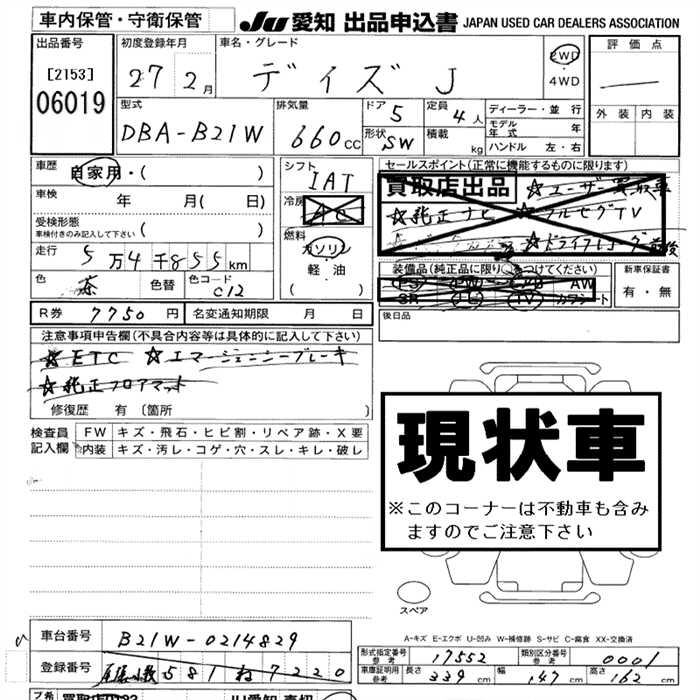 車内保管・守衛保管
JU 愛知 出品申込書 JAPAN USED CAR DEALERS ASSOCIATION
出品番号
[2153]
06019
初度登録年月
27 2月
車名・グレード
デイズ J
2WD
・
4WD
評価点
外装 内装
型式
DBA-B21W
排気量
660cc
ドア 5
形状 SW
定員 4人
積載 kg
ディーラー・並行
モデル年式 年
ハンドル 左・右
車歴
自家用・( )
車検
年 月( 日)
受検形態
車検付きのみ記入して下さい ( )
走行 5万4千855km
色 茶 色替 色コード C12
シフト
IAT
冷房
AC
燃料
ガソリン
・
軽油
( )
セールスポイント(正常に機能するものに限ります)
買取店出品 ☆ユーザー買取車
☆純正ナビ ☆フルセグTV
☆ドライブレコーダー前後
装備品(純正品に限り○をつけてください)
PS PW AB AW
SR TV カワシート
新車保証書
有・無
R券 7750円 名変通知期限 月 日
後日品
注意事項申告欄(不具合内容等は具体的に記入して下さい)
☆ETC ☆エマージェンシーブレーキ
☆純正フロアマット
修復歴 有〔箇所 〕
検査員
記入欄
FW キズ・飛石・ヒビ割・リペア跡・X要
内装 キズ・汚レ・コゲ・穴・スレ・キレ・破レ
現状車
※このコーナーは不動車も含み
ますのでご注意下さい
スペア
A-キズ E-エクボ U-凹み W-補修跡 S-サビ C-腐食 XX-交換済
車台番号 B21W-0214829
登録番号 尾張小牧 581 ね 7220
形式指定番号
参考 17552
類別区分番号
参考 0001
車庫証明用
参考 長さ 339cm 幅 147cm 高さ 162cm